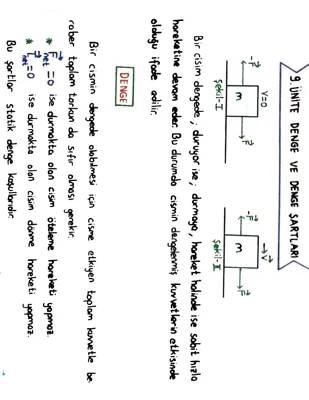 9. ÜNİTE DENGE VE DENGE ŞARTLARI
V=0
-F
m
F
Şekil-I
→V
-F
m
F
Şekil-II
Bir cisim dengede, duruyor ise; durmaya, hareket halinde ise sabit hızla
hareketine devam eder. Bu durumda cismin dengelenmiş kuvvetlerin etkisinde
olduğu ifade edilir.
DENGE
Bir cismin dengede olabilmesi için cisme etkiyen toplam kuvvetle be-
raber toplam torkun da sıfır olması gerekir.
* F net = 0 ise durmakta olan cisim öteleme hareketi yapmaz.
* net = 0 ise durmakta olan cisim dönme hareketi yapmaz.
Bu şartlar statik denge koşullarıdır.